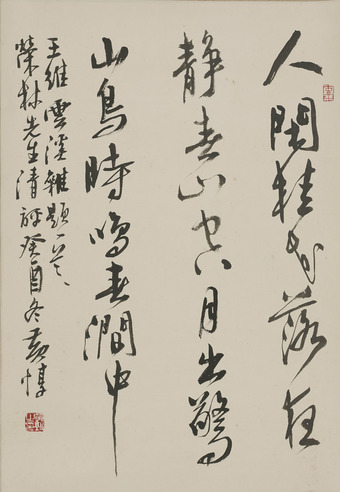 人閑桂花落夜
静春山空月出驚
山鳥時鳴春澗中
王維雲溪雜題
榮林先生清評癸酉冬黃惇